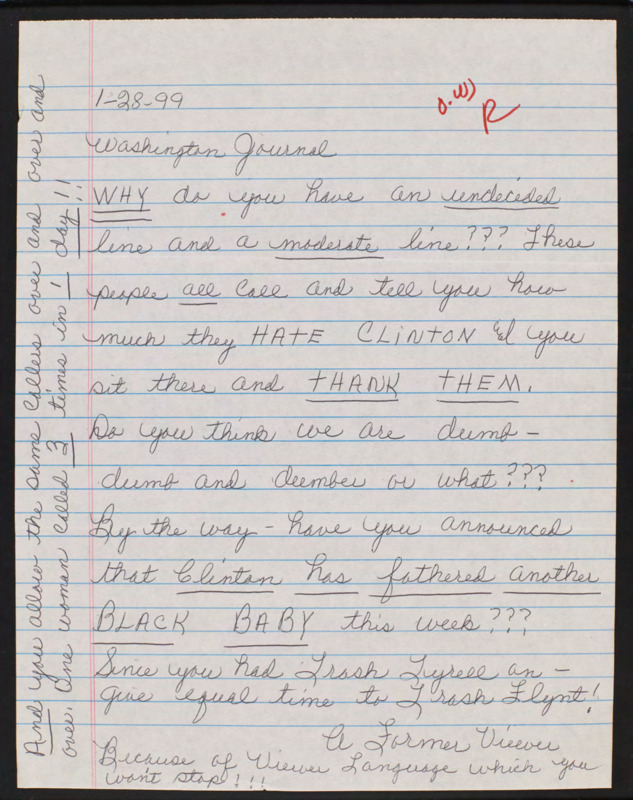 1-28-99
R
Washington Journal
WHY do you have an undecided
line and a moderate line??? These
people all call and tell you how
much they HATE CLINTON & you
sit there and THANK THEM.
Do you think we are dumb-
dumb and dumber or what???
By the way - have you announced
that Clinton has fathered another
BLACK BABY this week???
Since you had Trash Tyrell on -
give equal time to Trash Flynt!
A Former Viewer
Because of Viewer Language which you
won't stop!!!
And you allow the same callers over and over and over and
over. One woman called 3 times in 1 day!!